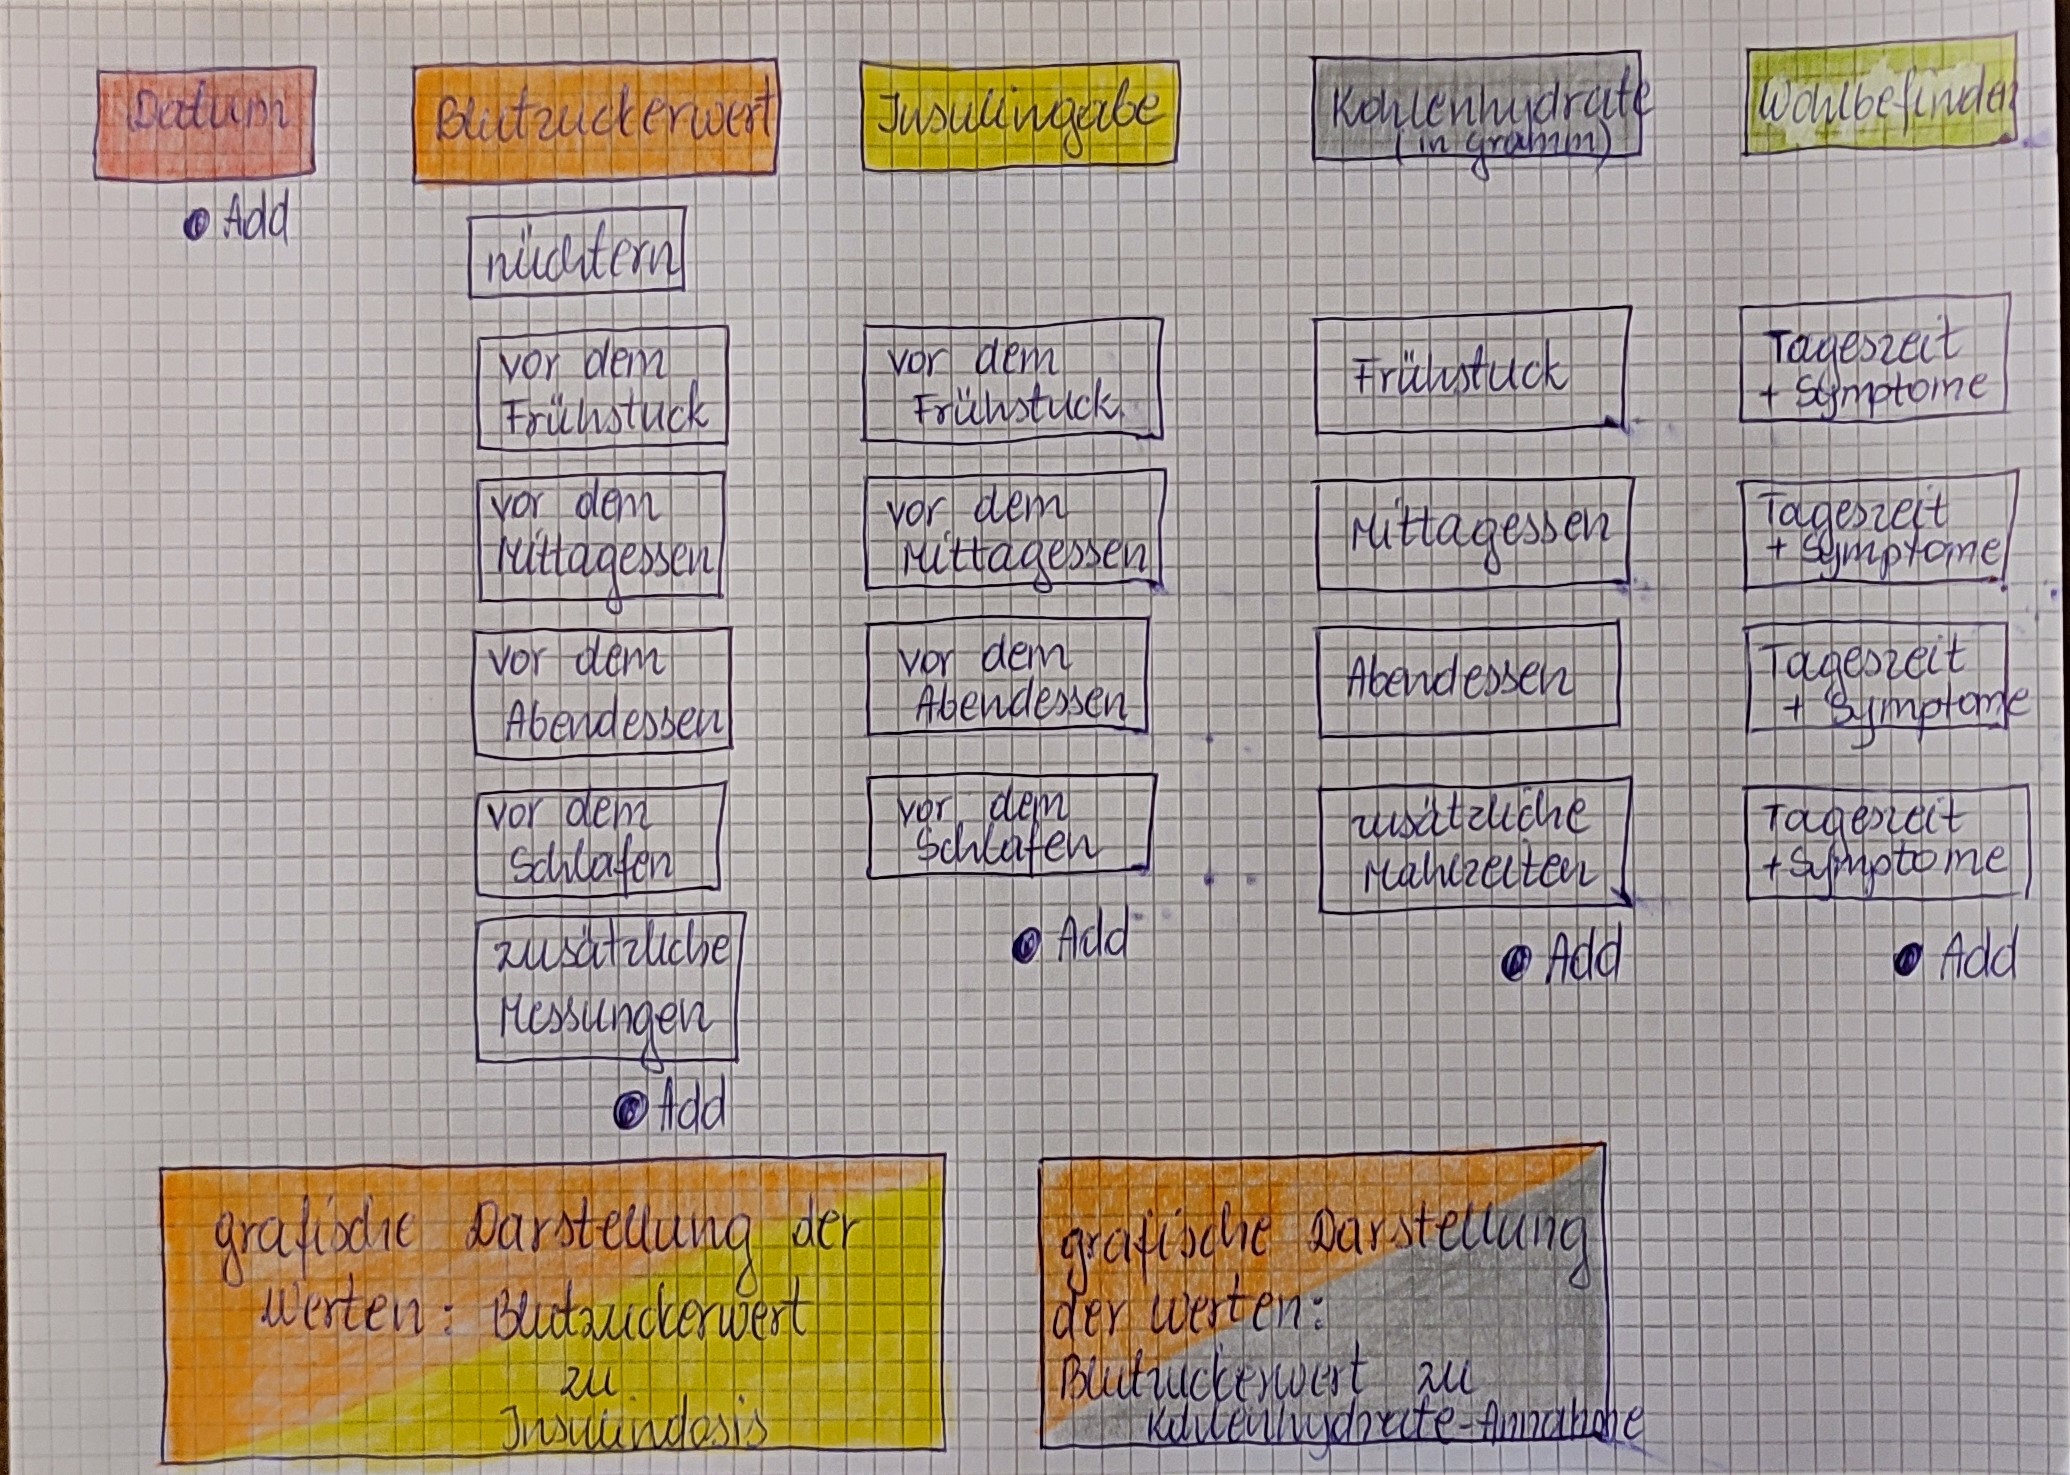 Datum
Blutzuckerwert
Insulingabe
Kohlenhydrate
(in gramm)
Wohlbefinden
Add
nüchtern
vor dem
Frühstuck
vor dem
Mittagessen
vor dem
Abendessen
vor dem
Schlafen
zusätzliche
Messungen
Add
vor dem
Frühstuck
vor dem
Mittagessen
vor dem
Abendessen
vor dem
Schlafen
Add
Frühstuck
Mittagessen
Abendessen
zusätzliche
Mahlzeiten
Add
Tageszeit
+ Symptome
Tageszeit
+ Symptome
Tageszeit
+ Symptome
Tageszeit
+ Symptome
Add
grafische Darstellung der
Werten: Blutzuckerwert
zu
Insulindosis
grafische Darstellung
der Werten:
Blutzuckerwert zu
Kohlenhydrate-Annahme